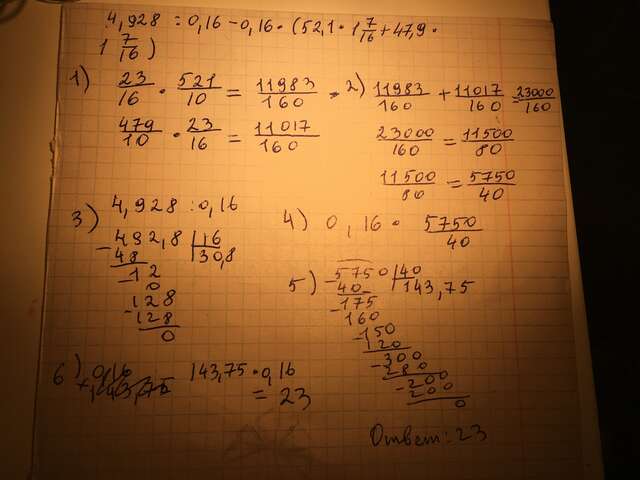 4,928 : 0,16 - 0,16 · (52,1 · 1 7/16 + 47,9 ·
· 1 7/16)
1) 23/16 · 521/10 = 11983/160
479/10 · 23/16 = 11017/160
2) 11983/160 + 11017/160 = 23000/160
23000/160 = 11500/80
11500/80 = 5750/40
3) 4,928 : 0,16
- 492,8 | 16
48 | 30,8
- 12
0
- 128
128
0
4) 0,16 · 5750/40
5) - 5750 | 40
40 | 143,75
- 175
160
- 150
120
- 300
280
- 200
200
0
6) 143,75 · 0,16
= 23
Ответ: 23